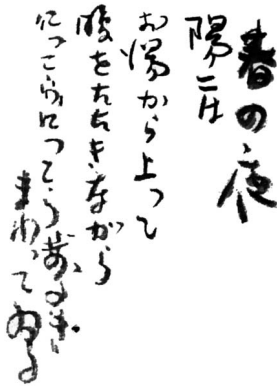 春の夜
陽二は
お湯から上って
腹をたたきながら
にっこらにっこら
まわってゐる